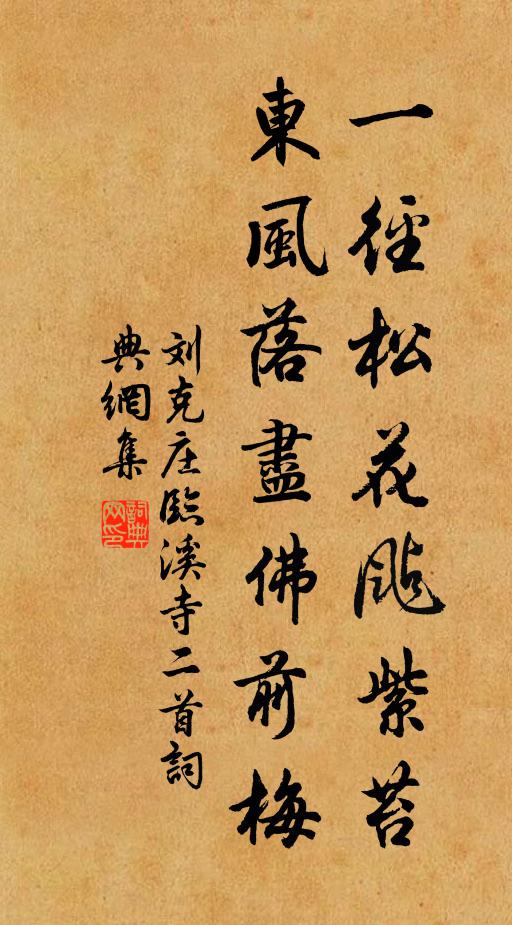 一徑松花颭紫苔
東風落盡佛前梅
刘克庄臨溪寺二首詞
典網集
詞典網印